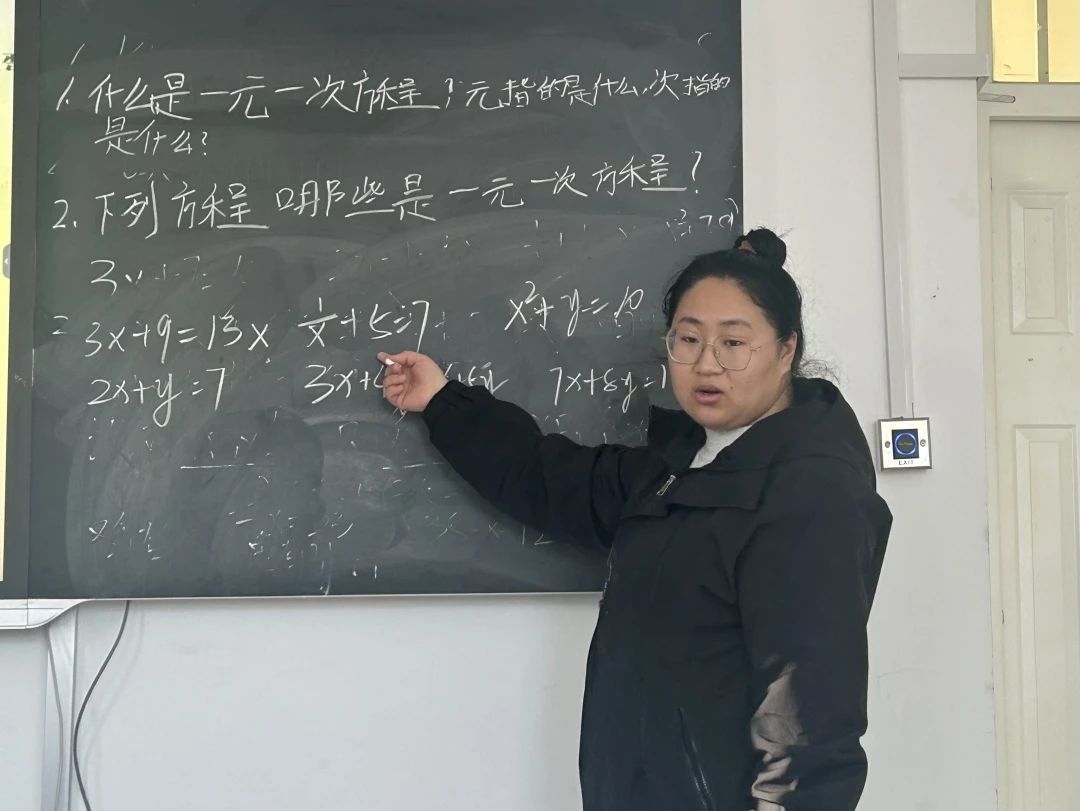 1. 什么是一元一次方程？元指的是什么，次指的
是什么？
2. 下列方程哪些是一元一次方程？
3x+9=13x 1/x+5=7 x²+y=10
2x+y=7 3x+ 7x+8y=1
EXIT